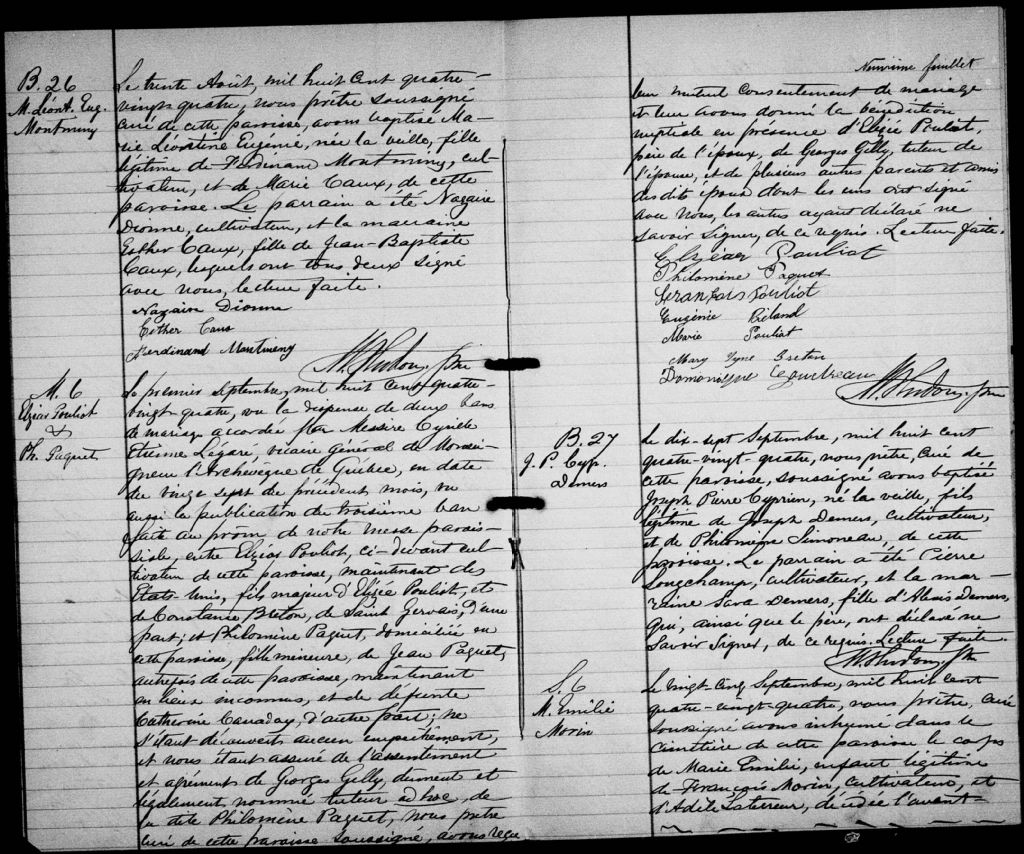 B. 26
M. Léont. Eug.
Montminy
Le trente Août, mil huit cent quatre-
vingt quatre, nous prêtre soussigné
curé de cette paroisse, avons baptisé Ma-
rie Léontine Eugénie, née la veille, fille
légitime de Ferdinand Montminy, cul-
tivateur, et de Marie Caux, de cette
paroisse. Le parrain a été Nazaire
Dionne, cultivateur, et la marraine
Esther Caux, fille de Jean-Baptiste
Caux, lesquels ont tous deux signé
avec nous, lecture faite.
Nazaire Dionne
Esther Caux
Ferdinand Montminy
M. 6
Elzéar Pouliot
&
Ph. Paquet
Le premier Septembre, mil huit cent quatre-
vingt quatre, vu la dispense de deux bans
de mariage accordée par Messire Cyrille
Etienne Légaré, vicaire général de Monsei-
gneur l'Archevêque de Québec, en date
du vingt sept du précédent mois, vu
aussi la publication du troisième ban
faite au prône de notre messe parois-
siale, entre Elzéar Pouliot, ci-devant cul-
tivateur de cette paroisse, maintenant des
Etats-Unis, fils majeur d'Elzée Pouliot, et
de Constance Breton, de Saint Gervais, d'une
part; et Philomène Paquet, domiciliée en
cette paroisse, fille mineure, de Jean Paquet,
autrefois de cette paroisse, maintenant
en lieux inconnus, et de défunte
Catherine Canaday, d'autre part; ne
s'étant découvert aucun empêchement,
et nous étant assuré de l'assentiment
et agrément de Georges Gilly, dument et
légalement nommé tuteur ad hoc, de
la dite Philomène Paquet, nous prêtre
curé de cette paroisse soussigné, avons reçu
Neuvième feuillet
leur mutuel consentement de mariage
et leur avons donné la bénédiction
nuptiale en présence d'Elzée Pouliot,
père de l'époux, de Georges Gilly, tuteur de
l'épouse, et de plusieurs autres parents et amis
des dits époux dont les uns ont signé
avec nous, les autres ayant déclaré ne
savoir signer, de ce requis. Lecture faite.
Elzéar Pouliot
Philomène Paquet
François Pouliot
Eugénie Béland
Marie Pouliot
Mary Breton
B. 27
J. P. Cyp.
Demers
Le dix-sept Septembre, mil huit cent
quatre-vingt-quatre, nous prêtre, curé de
cette paroisse, soussigné avons baptisé
Joseph Pierre Cyprien, né la veille, fils
légitime de Joseph Demers, cultivateur,
et de Philomène Simoneau, de cette
paroisse. Le parrain a été Pierre
Longchamp, cultivateur, et la mar-
raine Sara Demers, fille d'Alexis Demers,
qui, ainsi que le père, ont déclaré ne
savoir signer, de ce requis. Lecture faite
S. 6
M. Emilie
Morin
Le vingt-cinq Septembre, mil huit cent
quatre-vingt-quatre, nous prêtre, curé
soussigné avons inhumé dans le
cimetière de cette paroisse le corps
de Marie Emilie, enfant légitime
de François Morin, cultivateur, et
d'Adèle décédée l'avant-